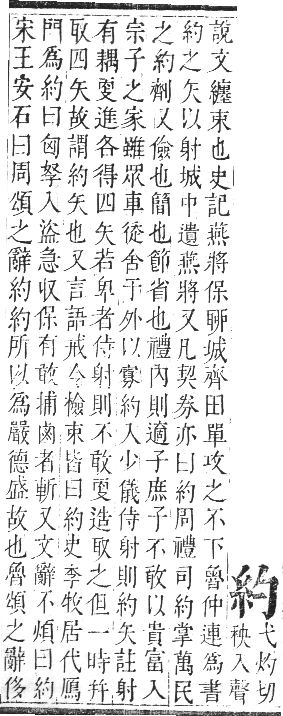 約
弋灼切
秧入聲
說文纏束也史記燕將保聊城齊田單攻之不下魯仲連爲書
約之矢以射城中遺燕將又凡契券亦曰約周禮司約掌萬民
之約劑又儉也簡也節省也禮內則適子庶子不敢以貴富入
宗子之家雖眾車徒舍于外以寡約入少儀侍射則約矢註射
有耦更進各得四矢若卑者侍射則不敢更造取之但一時幷
取四矢故謂約矢也又言語戒令檢束皆曰約史李牧居代鴈
門爲約曰匈奴入盜急收保有敢捕鹵者斬又文辭不煩曰約
宋王安石曰周頌之辭約約所以爲嚴德盛故也魯頌之辭侈